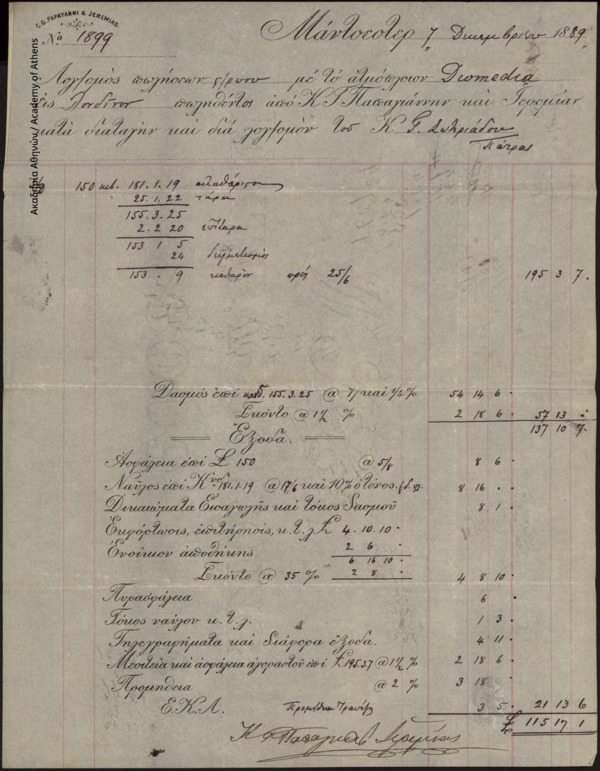 C.G. PAPAYANNI & JEREMIAS.
№ 1899
Μάντσεστερ 7 Δεκεμβρίου 1889
Λογ/σμός πωλήσεως μέ τό ἀτμόπλοιον Diomedia
εἰς Λονδῖνον πωληθέντος ἀπό Κ Γ Παπαγιάννην καί Ιερεμίαν
κατά διαταγήν καί διά λογ/σμόν τοῦ Κ G. Σωτηριάδου
Πάτραι
150 181.1.19
25.1.22 τάρα
155.3.25
2.2.20
153 1 5
24
153 . 9 καθαρόν πρός 25/6 195 3 7
Δασμός ἐπί 155.3.25 @ 7/ καί 1/2 % 54 14 6
Σκόντο @ 1 1/2 % 2 18 6 57 13 .
137 10 7
Ἔξοδα.
Ἀσφάλεια ἐπί £ 150 @ 5/8 8 6 .
Ναῦλος ἐπί Κ 181.1.19 @ 17/6 καί 10% ὁ τόνος. 8 16 .
Δικαιώματα Εἰσαγωγῆς καί τόκος δασμοῦ 8 1 .
Ἐκφόρτωσις, ἐπιτήρησις, κ.τ.λ. £ 4.10.10
Ἐνοίκιον ἀποθήκης 2 6 .
6 16 10
Σκόντο @ 35 % 2 8 . 4 8 10
Πυρασφάλεια 6 .
Τόκος ναύλου κ.τ.λ. 1 3
Τηλεγραφήματα καί διάφορα ἔξοδα. 4 11
Μεσιτεία καί ἀσφάλεια ἀγοραστοῦ ἐπί £ 195.3.7 @ 1 1/2 % 2 18 6
Προμήθεια @ 2 % 3 18
Ε.Κ.Λ. Προμήθεια Τραπέζ 3 5 21 13 6
£ 115 17 1
Ακαδημία Αθηνών / Academy of Athens